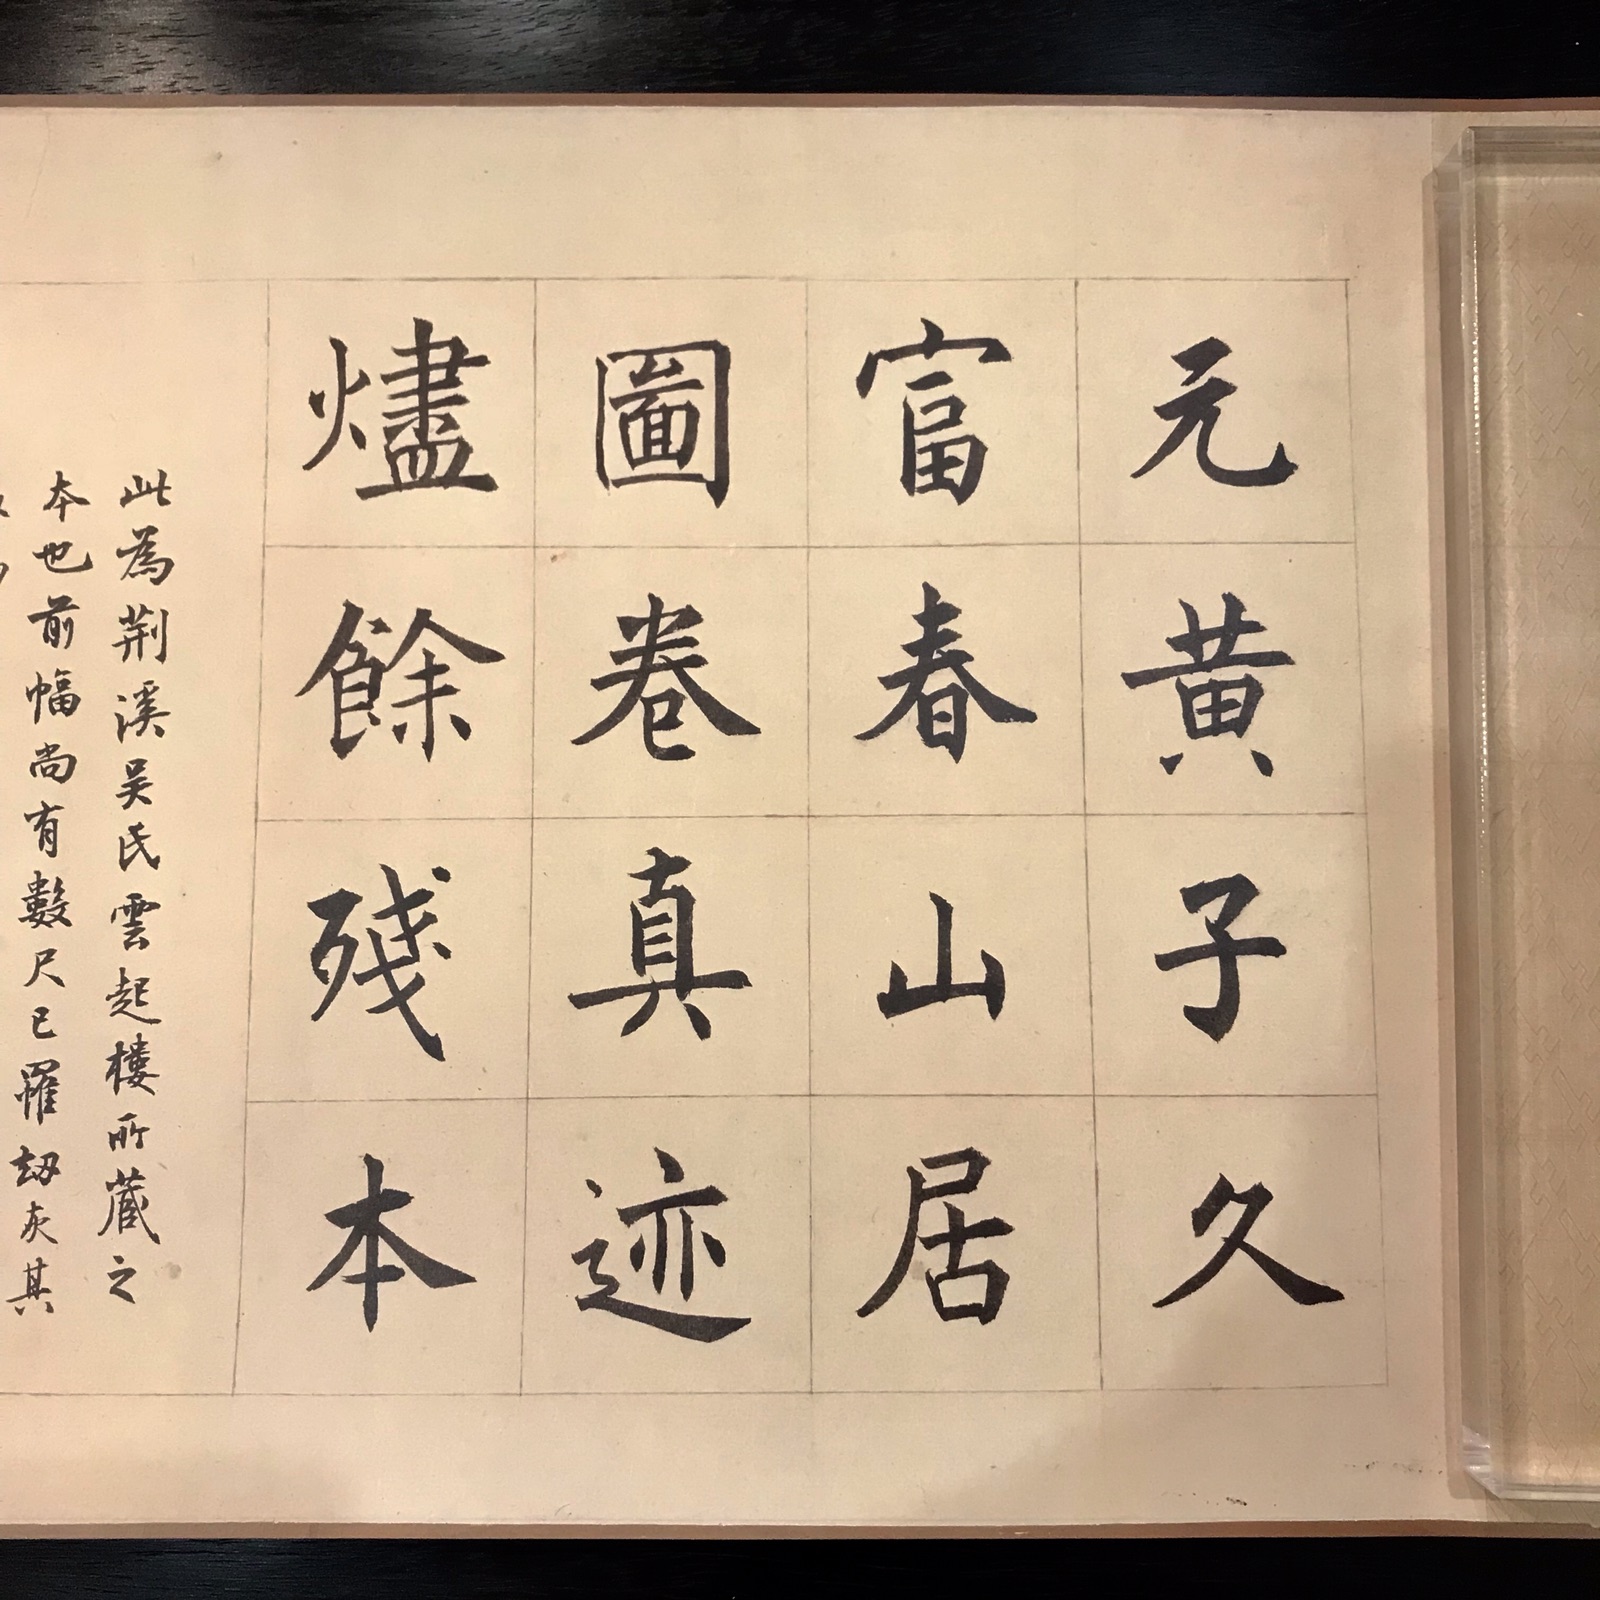 元黃子久
富春山居
圖卷真迹
燼餘殘本
此為荆溪吴氏雲起樓所藏之
本也前幅尚有數尺已罹劫灰其